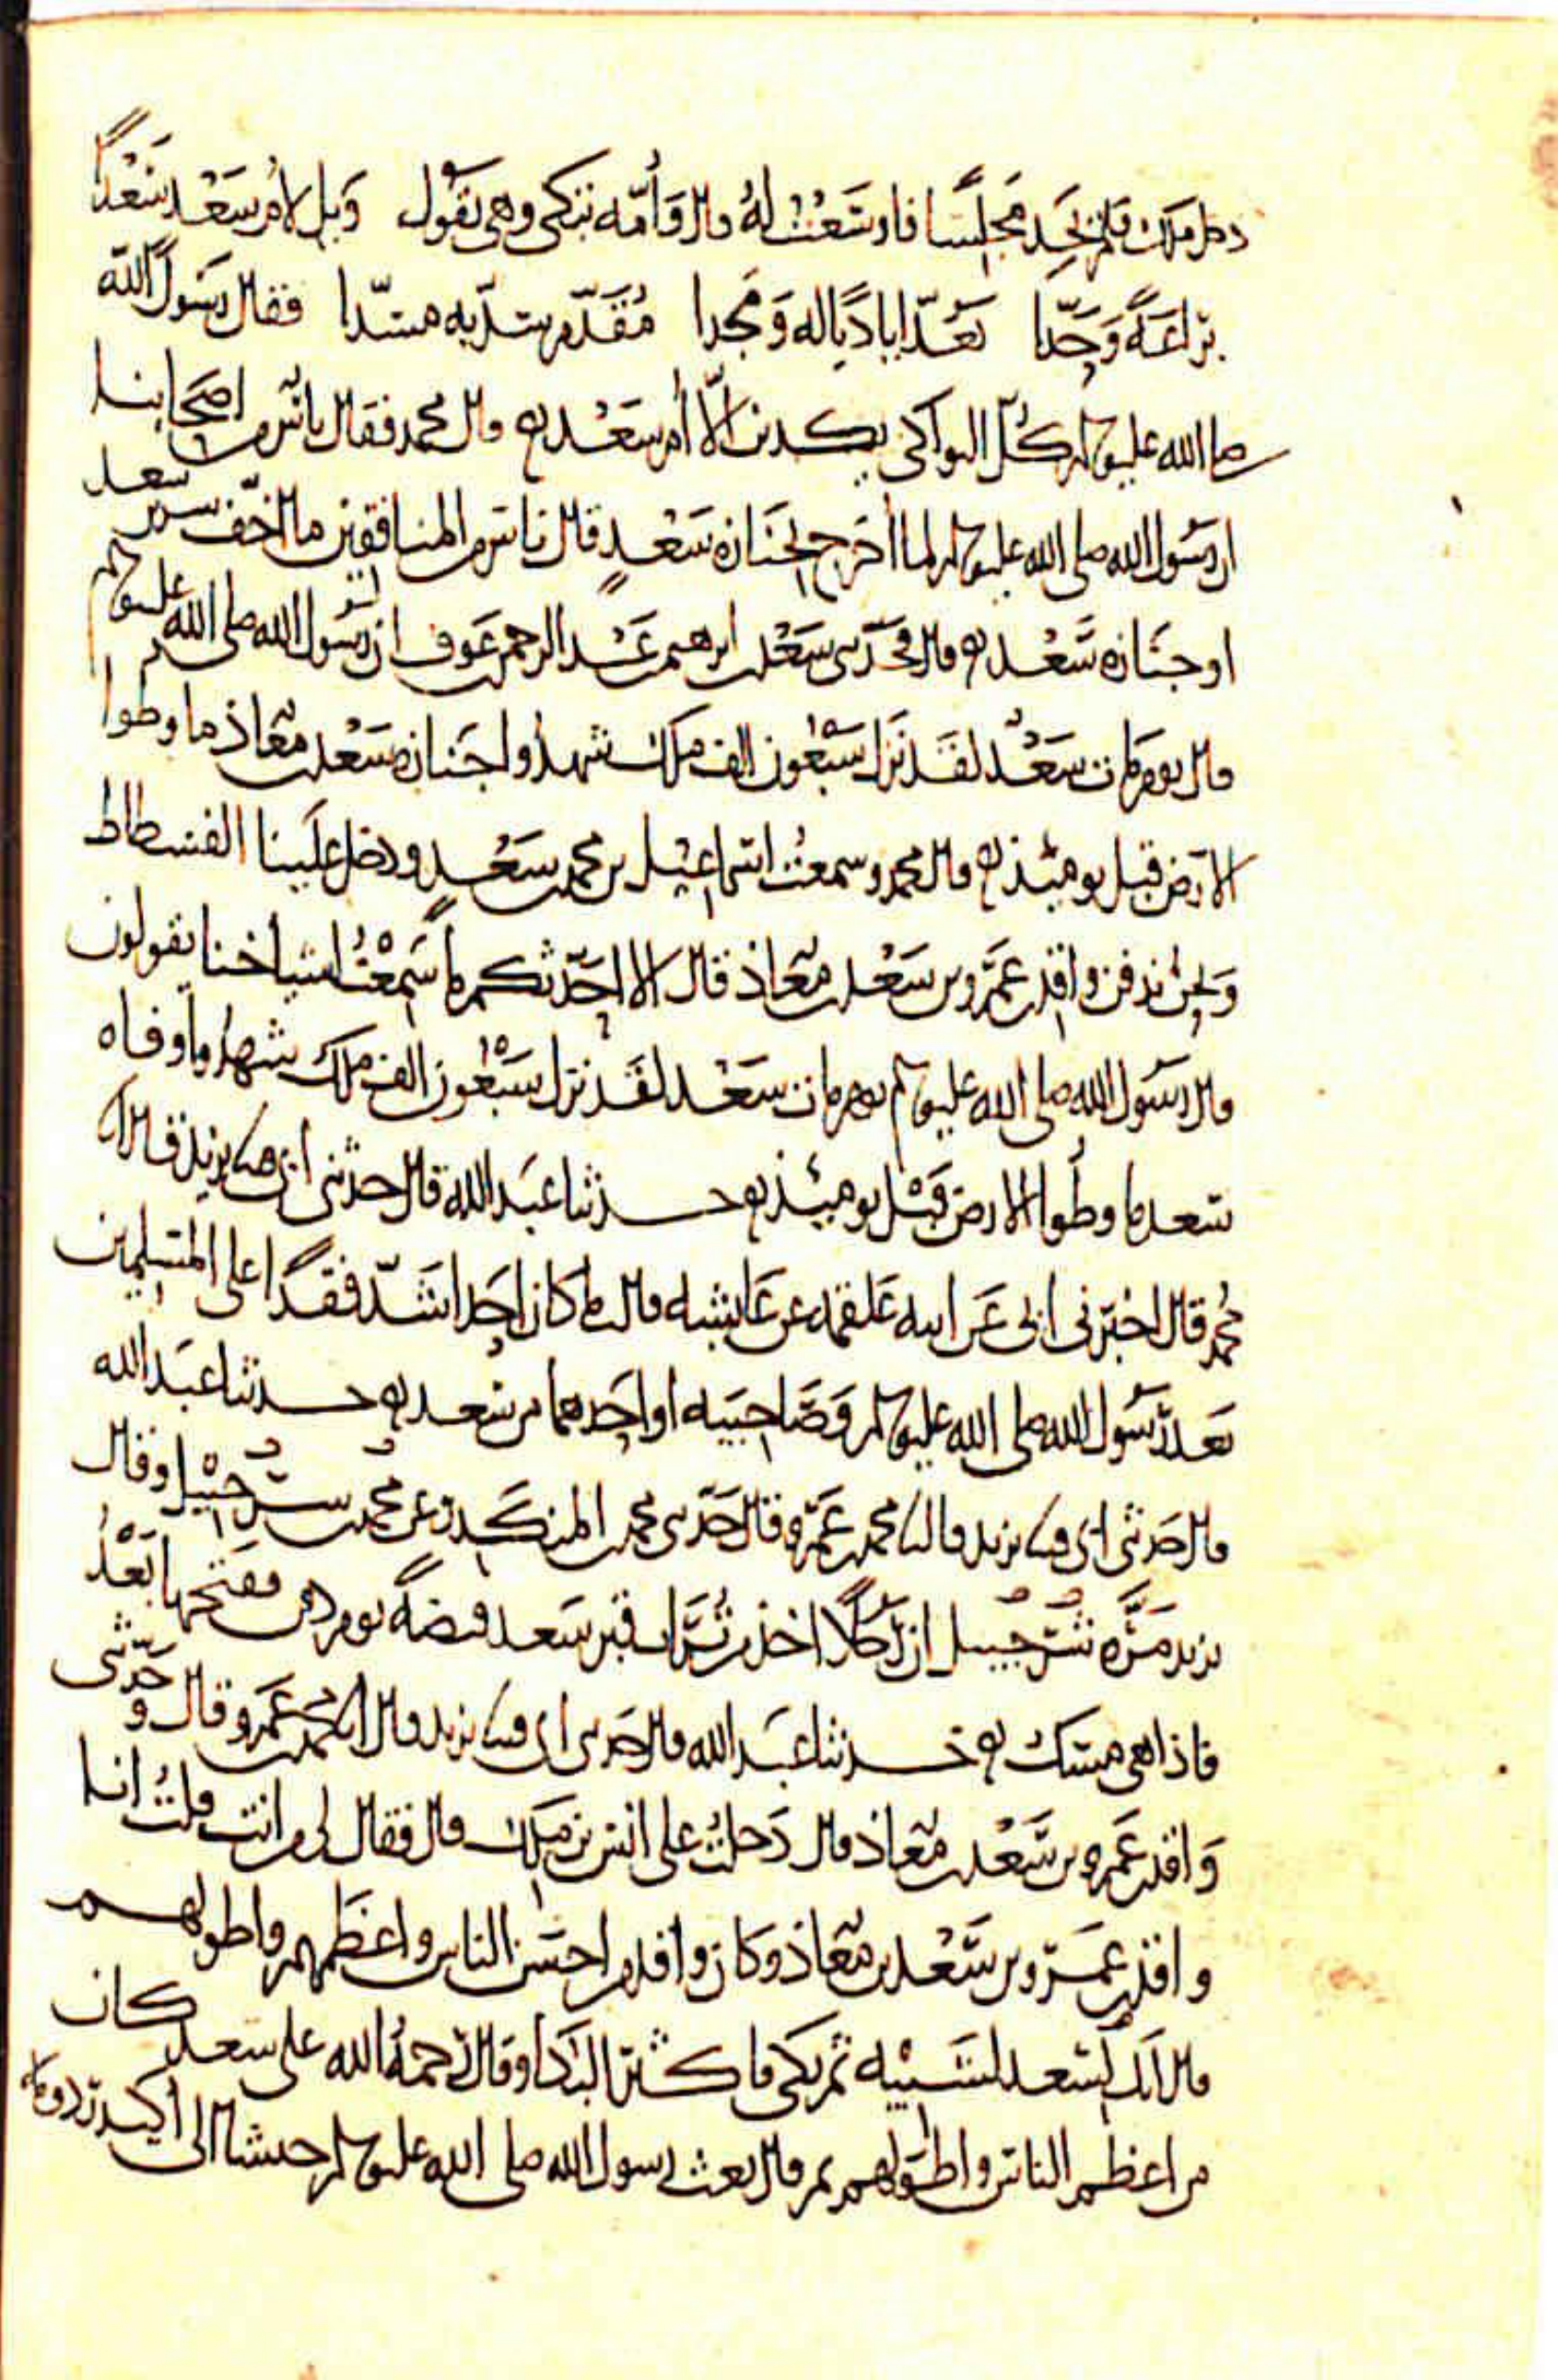 دخل ملك فلم يجد مجلسا فاوسعت له قال وأمه تبكي وهي تقول ويل لام سعد سعدا
براعة وجدا بعد ايادٍ ياله ومجدا مقدم سد به مسدا فقال رسول الله
صلى الله عليه وسلم كل البواكي يكذبن الا أم سعد قال محمد فقال ناس من اصحابنا
ان رسول الله صلى الله عليه وسلم لما أخرج لجنازة سعد قال ناس من المنافقين ما اخف سرير سعد
او جنازة سعد قال فحدثني سعد بن ابرهيم بن عبد الرحمن بن عوف ان رسول الله صلى الله عليه وسلم
قال يوم مات سعد لقد نزل سبعون الف ملك شهدوا جنازة سعد بن معاذ ما وطوا
الارض قبل يوميئذ قال محمد وسمعت اسماعيل بن محمد بن سعد ودخل علينا الفسطاط
ونحن ندفن واقد بن عمرو بن سعد بن معاذ قال الا احدثكم ما سمعت اشياخنا يقولون
قال رسول الله صلى الله عليه وسلم يوم مات سعد لقد نزل سبعون الف ملك شهدوا وفاه
سعد ما وطوا الارض قبل يوميئذ حدثنا عبد الله قال حدثني ابي نا يزيد قال انا
محمد قال اخبرني ابي عن ابيه علقمه عن عايشه قالت ما كان احد اشد فقدا على المسلمين
بعد رسول الله صلى الله عليه وسلم وصاحبيه او احدهما من سعد حدثنا عبد الله
قال حدثني ابي نا يزيد قال انا محمد بن عمرو قال حدثني محمد بن المنكدر عن محمد بن شرحبيل وقال
يزيد مره شرحبيل ان رجلا اخذ من تراب قبر سعد قبضة يوم دفن ففتحها بعد
فاذا هي مسك حدثنا عبد الله قال حدثني ابي نا يزيد قال انا محمد بن عمرو قال وحدثني
واقد بن عمرو بن سعد بن معاذ قال دخلت على انس بن ملك قال فقال لي من انت قلت انا
واقد بن عمرو بن سعد بن معاذ وكان واقد من احسن الناس واعظمهم واطولهم
قال انك بسعد لشبيه ثم بكى فاكثر البكا وقال رحمة الله على سعد كان
من اعظم الناس واطولهم ثم قال بعث رسول الله صلى الله عليه وسلم جيشا الى أكيدر دومه